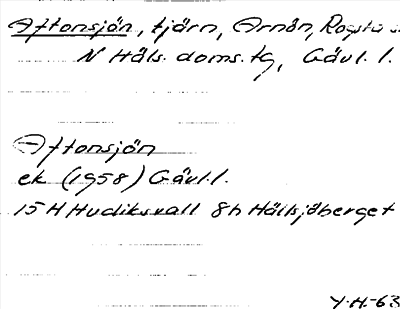 Aftonsjön, tjärn, Arnön, Rogsta s
N Häls. doms.tg, Gävl. l.
Aftonsjön
ek (1958) Gävl. l.
15H Hudiksvall 8h Hällsjöberget
Y.H.-63